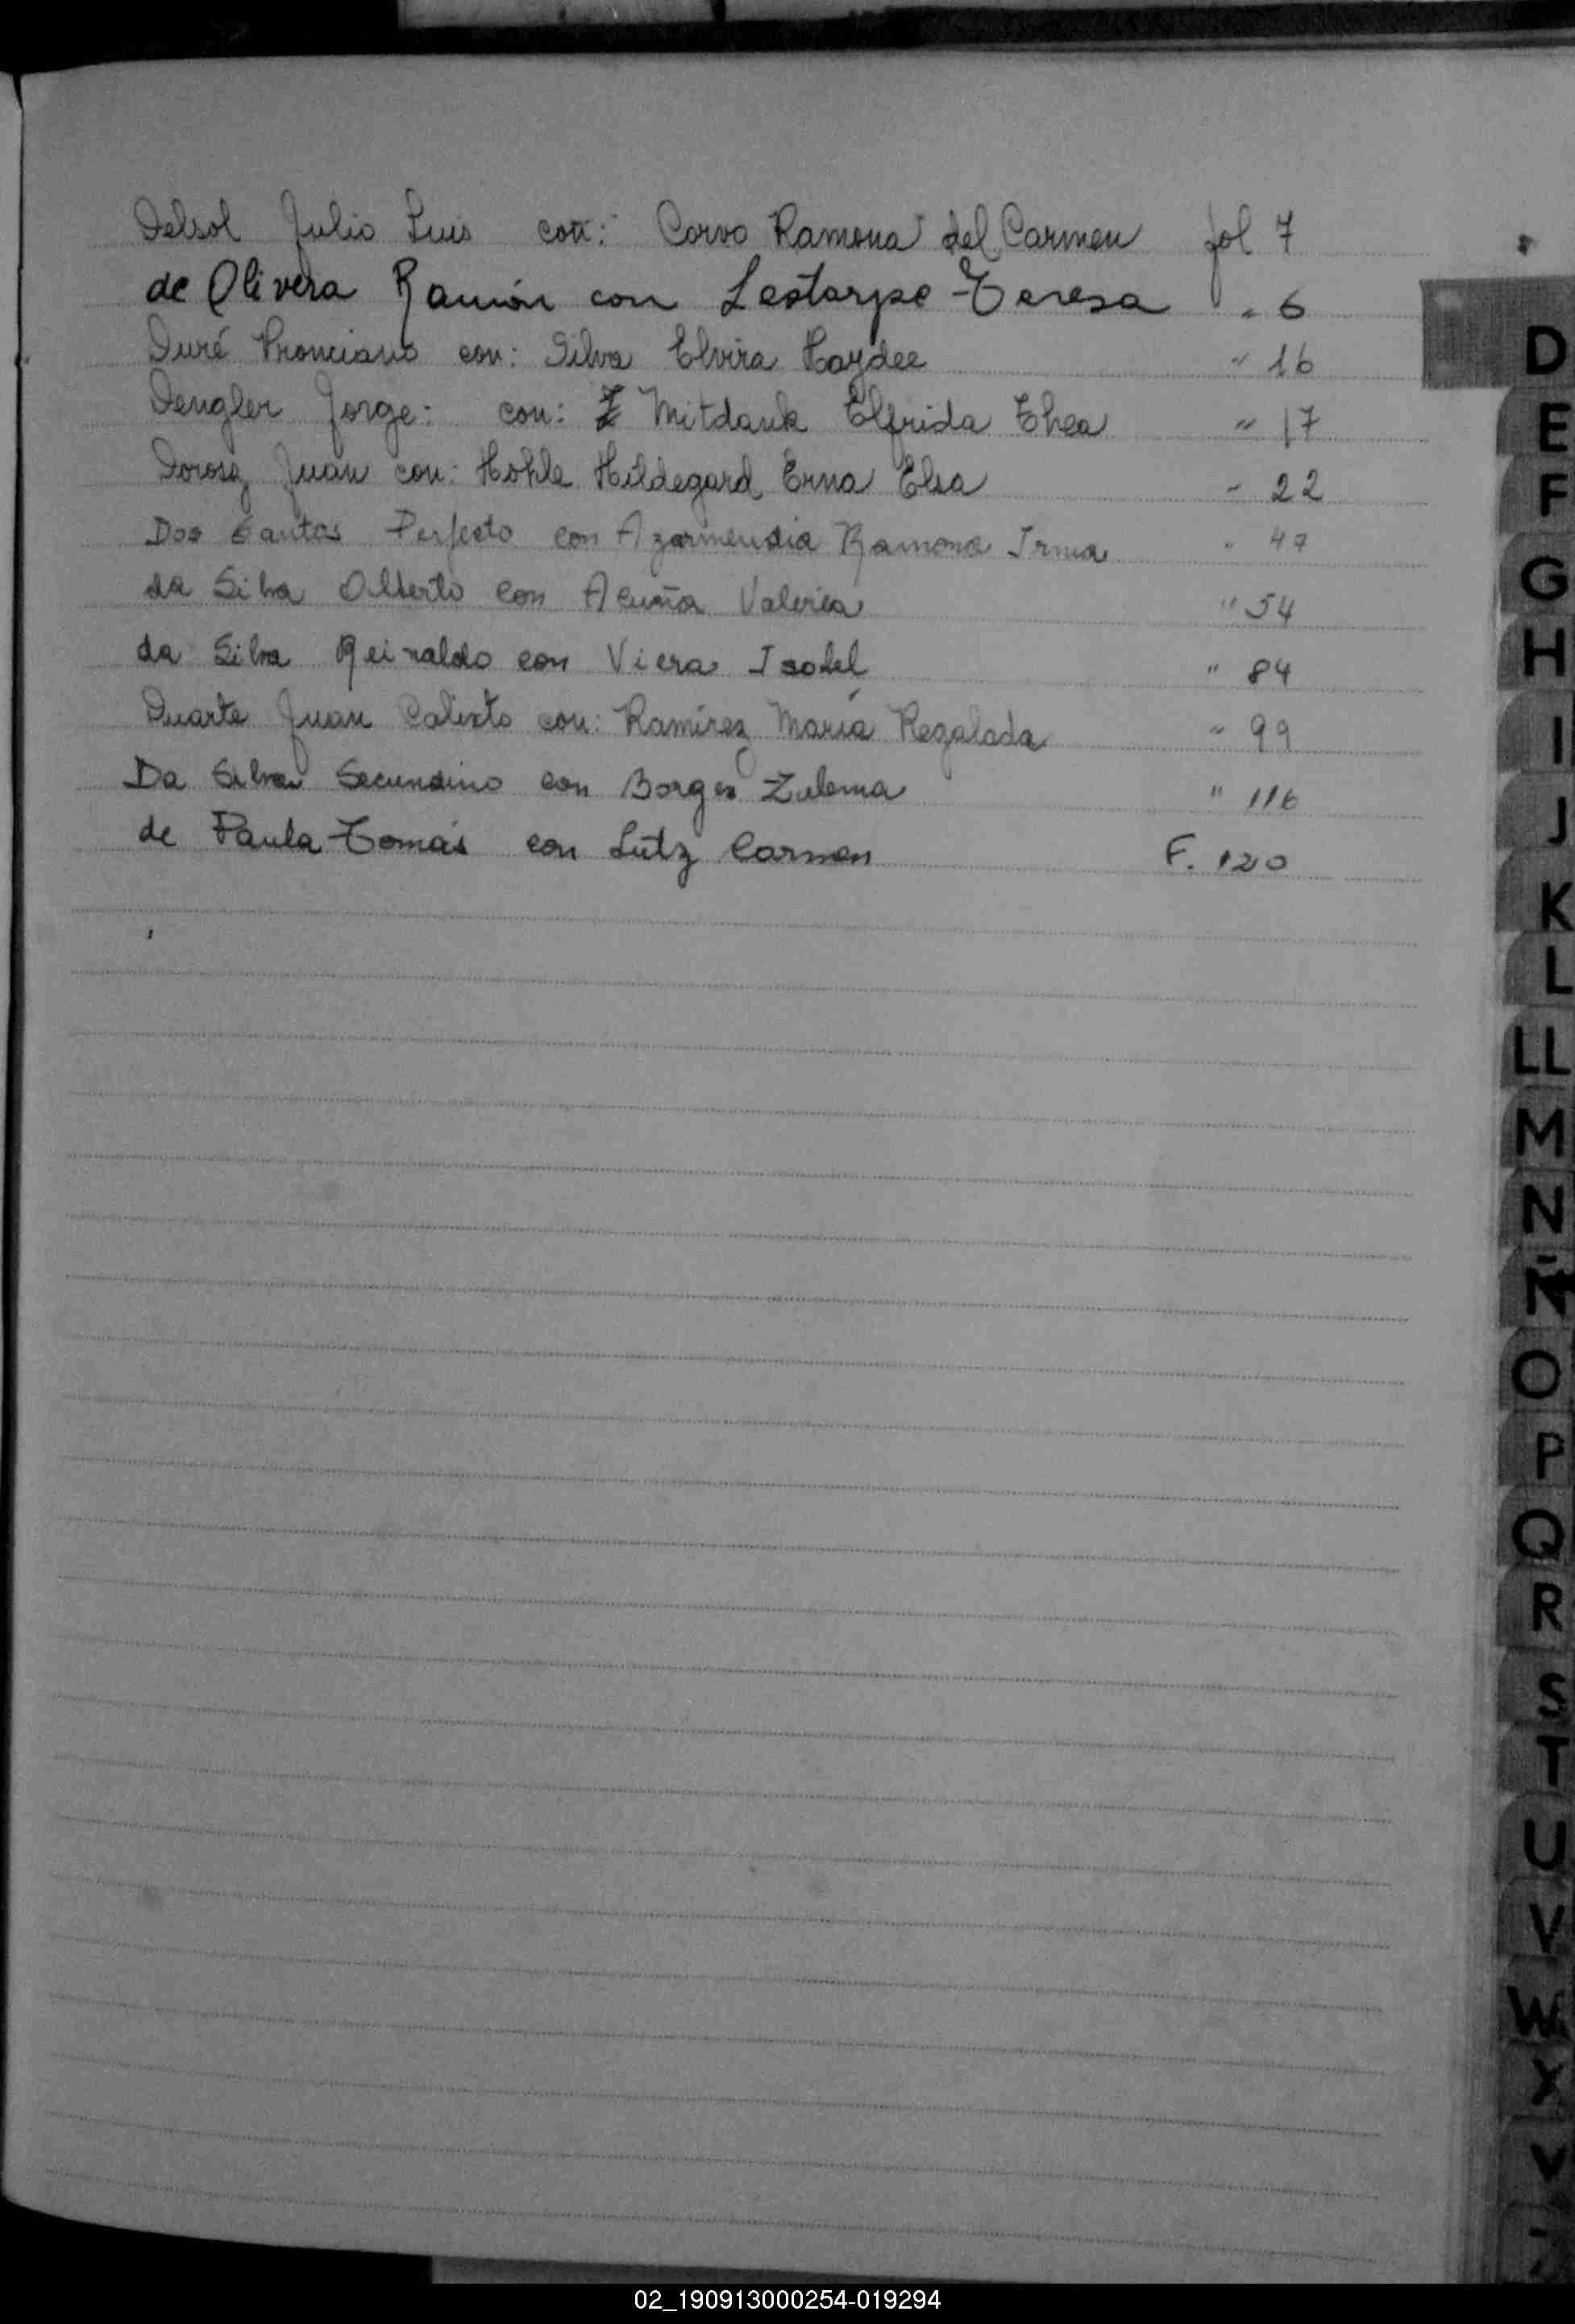 Delsol Julio Luis con: Corvo Ramona del Carmen fol 7
de Olivera Ramón con Lestarpe Teresa " 6
Duré Ponciano con: Silva Elvira Haydee " 16
Dengler Jorge: con: Mitdank Elfrida Thea " 17
Dorosz Juan con: Hohle Hildegard Erna Elsa " 22
Dos Santos Perfecto con Azarmendia Ramona Irma " 47
da Silva Alberto con Acuña Valeria " 54
da Silva Reinaldo con Viera Isabel " 84
Duarte Juan Calixto con: Ramírez María Regalada " 99
Da Silva Secundino con Borges Zulema " 116
de Paula Tomás con Lutz Carmen F. 120
D
E
F
G
H
I
J
K
L
LL
M
N
Ñ
O
P
Q
R
S
T
U
V
W
X
Y
Z
02_190913000254-019294